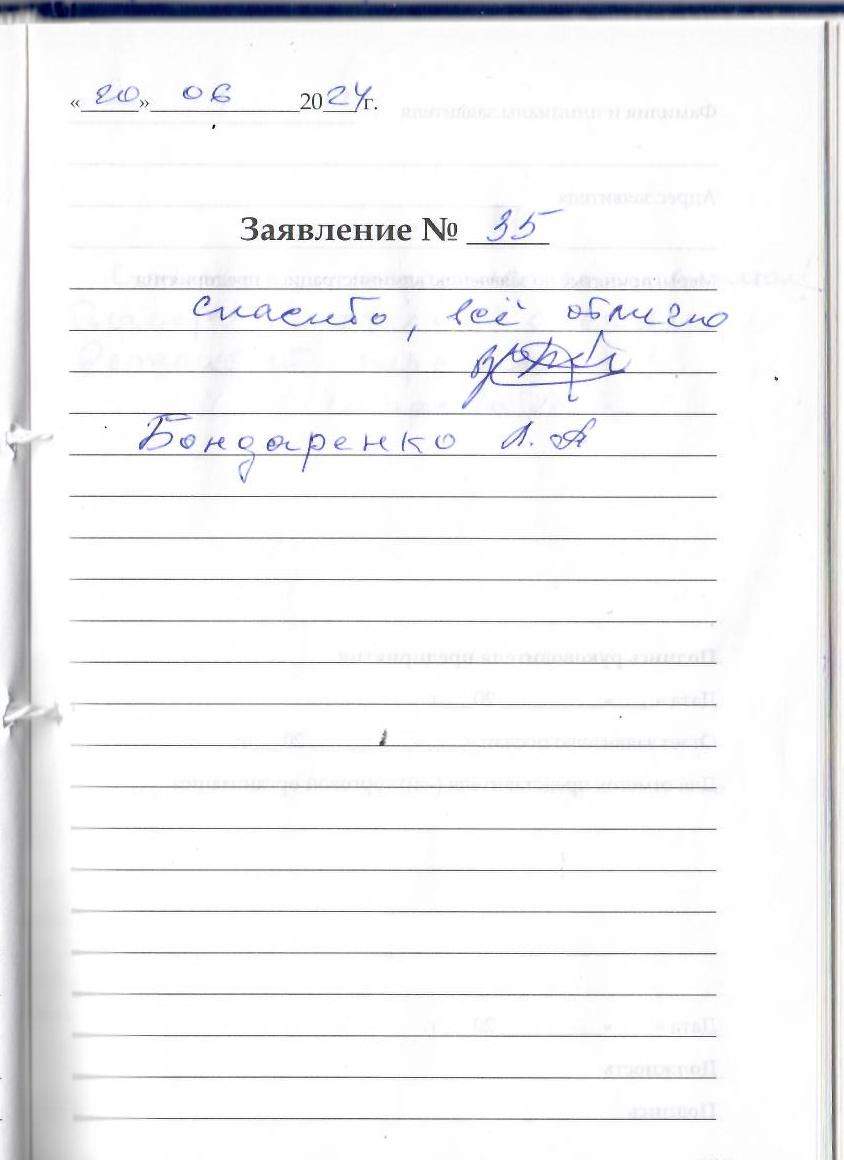 « 20 » 06 2024 г.
Заявление № 35
спасибо, всё отлично
Бондаренко Л. А